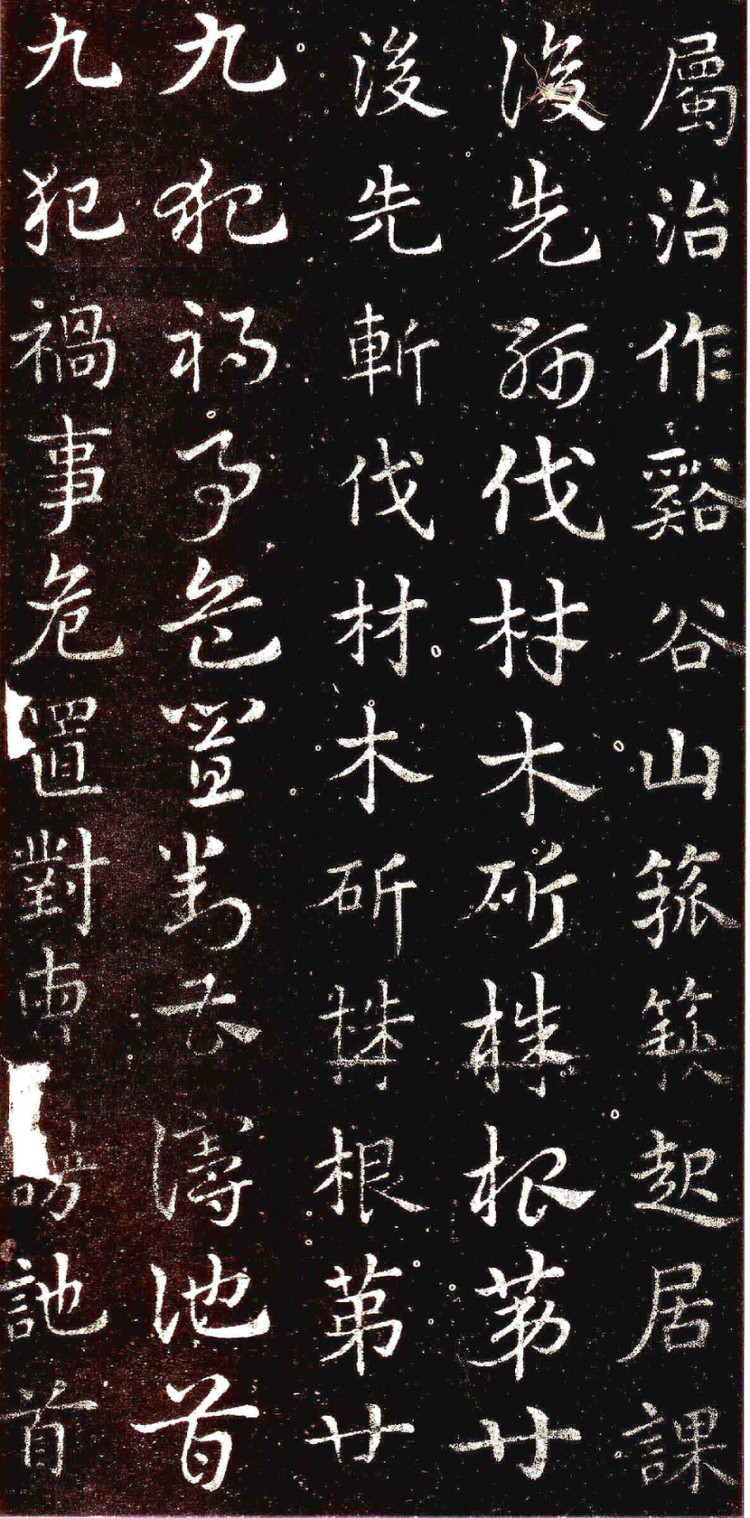 屬治作谿谷山箛篍起居課
後先斫伐材木斫株根第廿
後先斬伐材木斫株根第廿
九犯禍事危置對曹謗訑首
九犯禍事危置對曹謗訑首